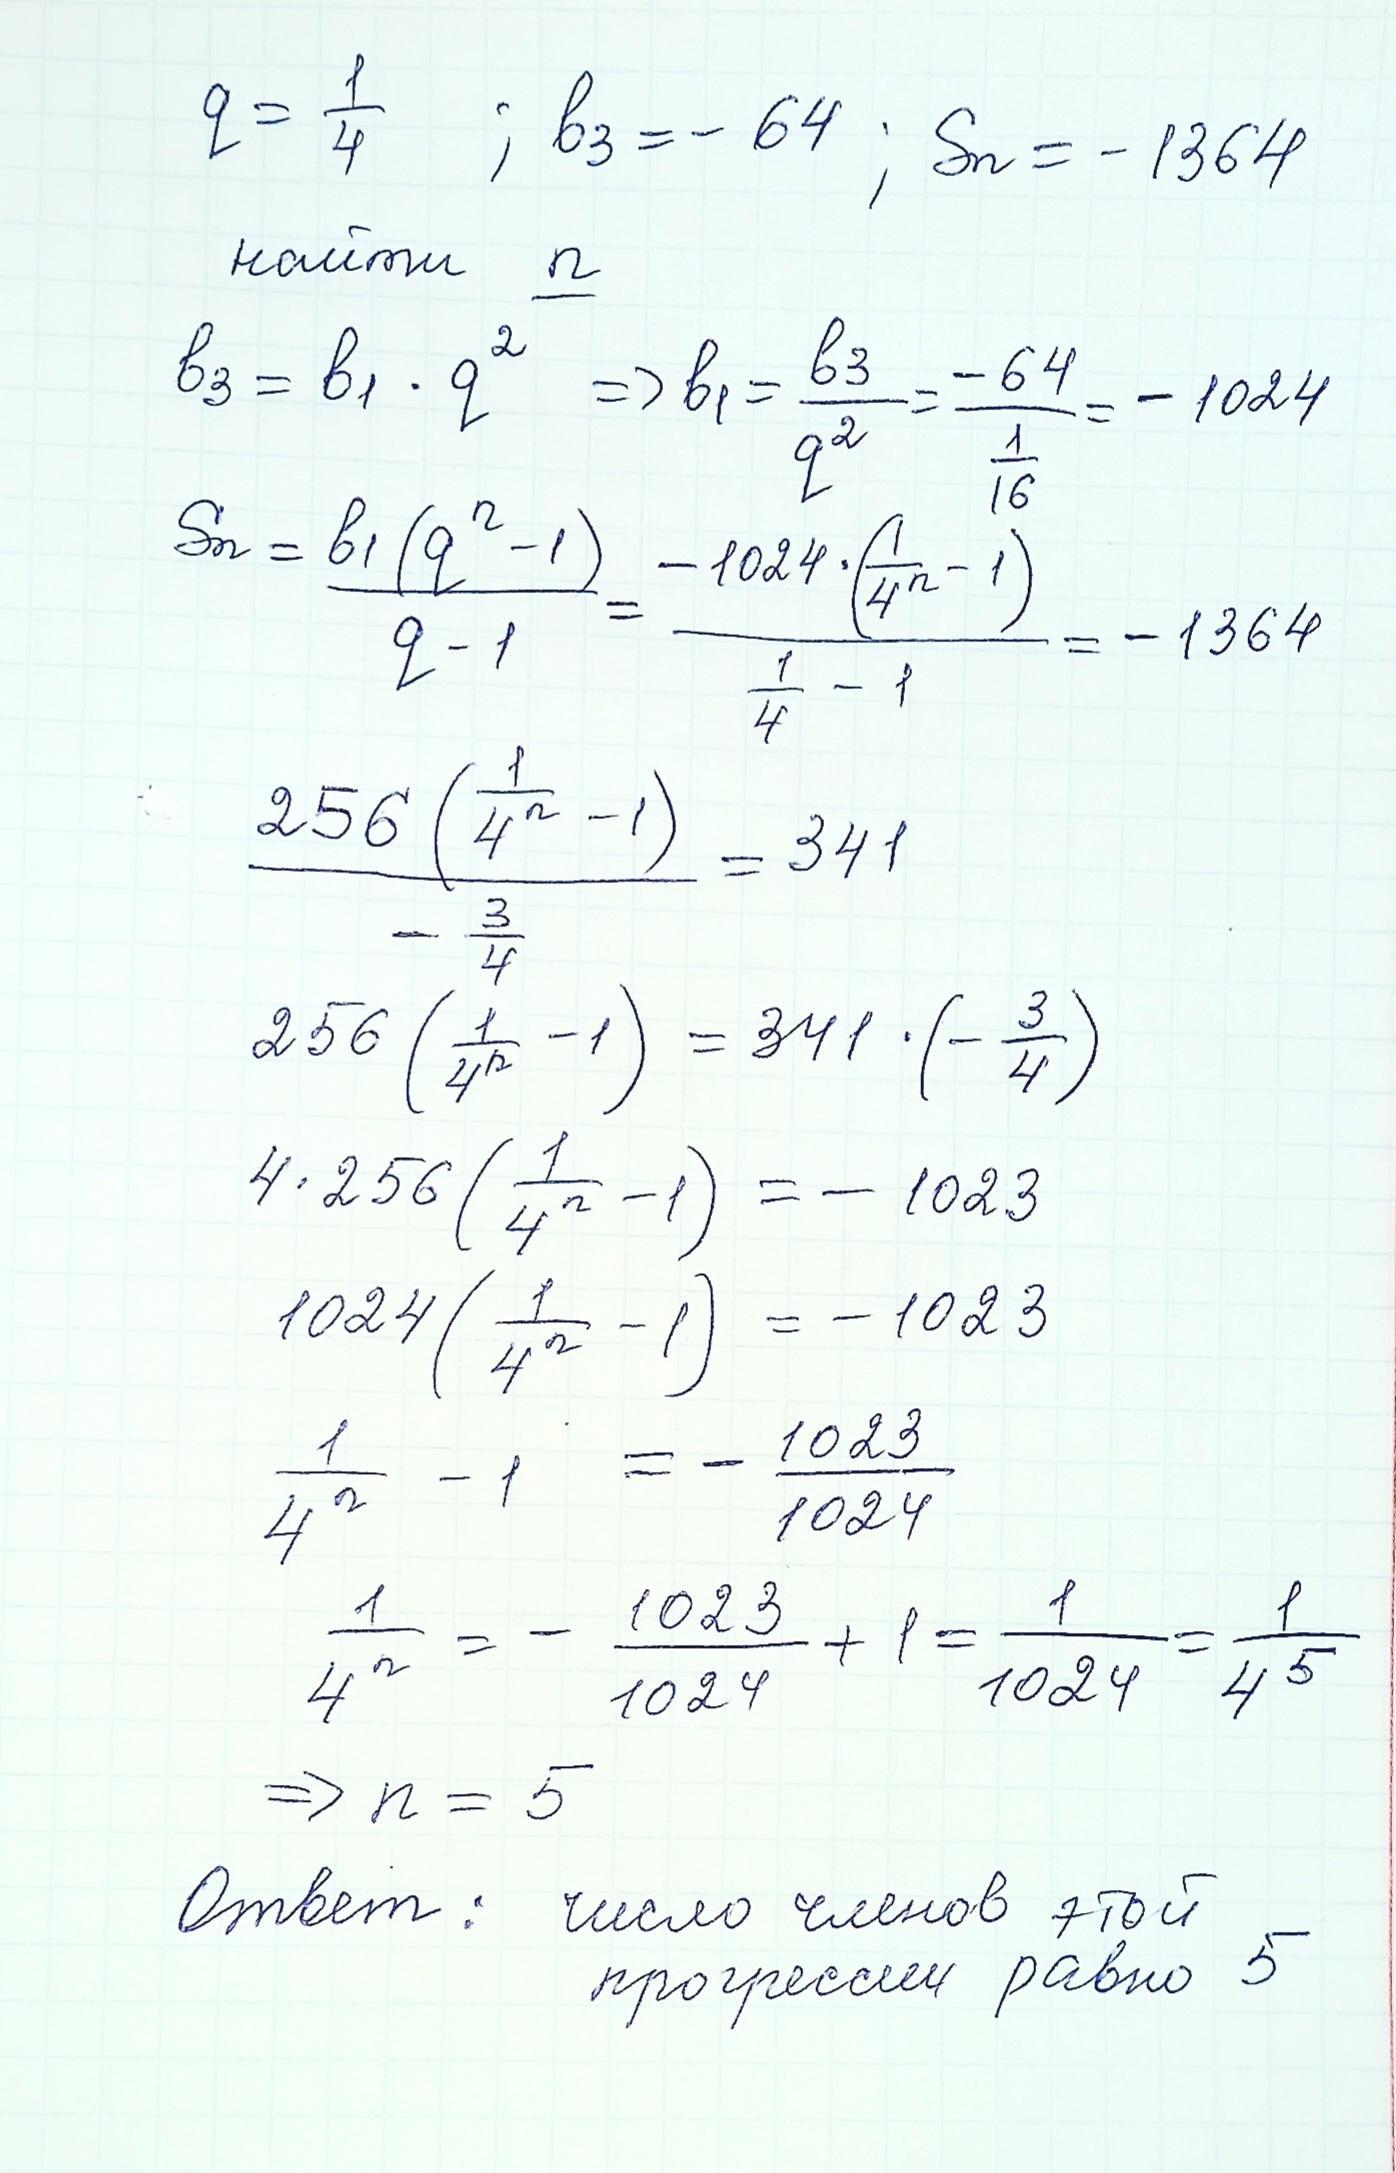 q = 1/4 ; b3 = - 64 ; Sn = - 1364
найти n
b3 = b1 · q² => b1 = b3/q² = -64/(1/16) = - 1024
Sn = b1(qⁿ - 1)/(q - 1) = -1024·(1/4ⁿ - 1)/(1/4 - 1) = - 1364
256(1/4ⁿ - 1)/(- 3/4) = 341
256(1/4ⁿ - 1) = 341 · (- 3/4)
4·256(1/4ⁿ - 1) = - 1023
1024(1/4ⁿ - 1) = - 1023
1/4ⁿ - 1 = - 1023/1024
1/4ⁿ = - 1023/1024 + 1 = 1/1024 = 1/4⁵
=> n = 5
Ответ: число членов этой
прогрессии равно 5